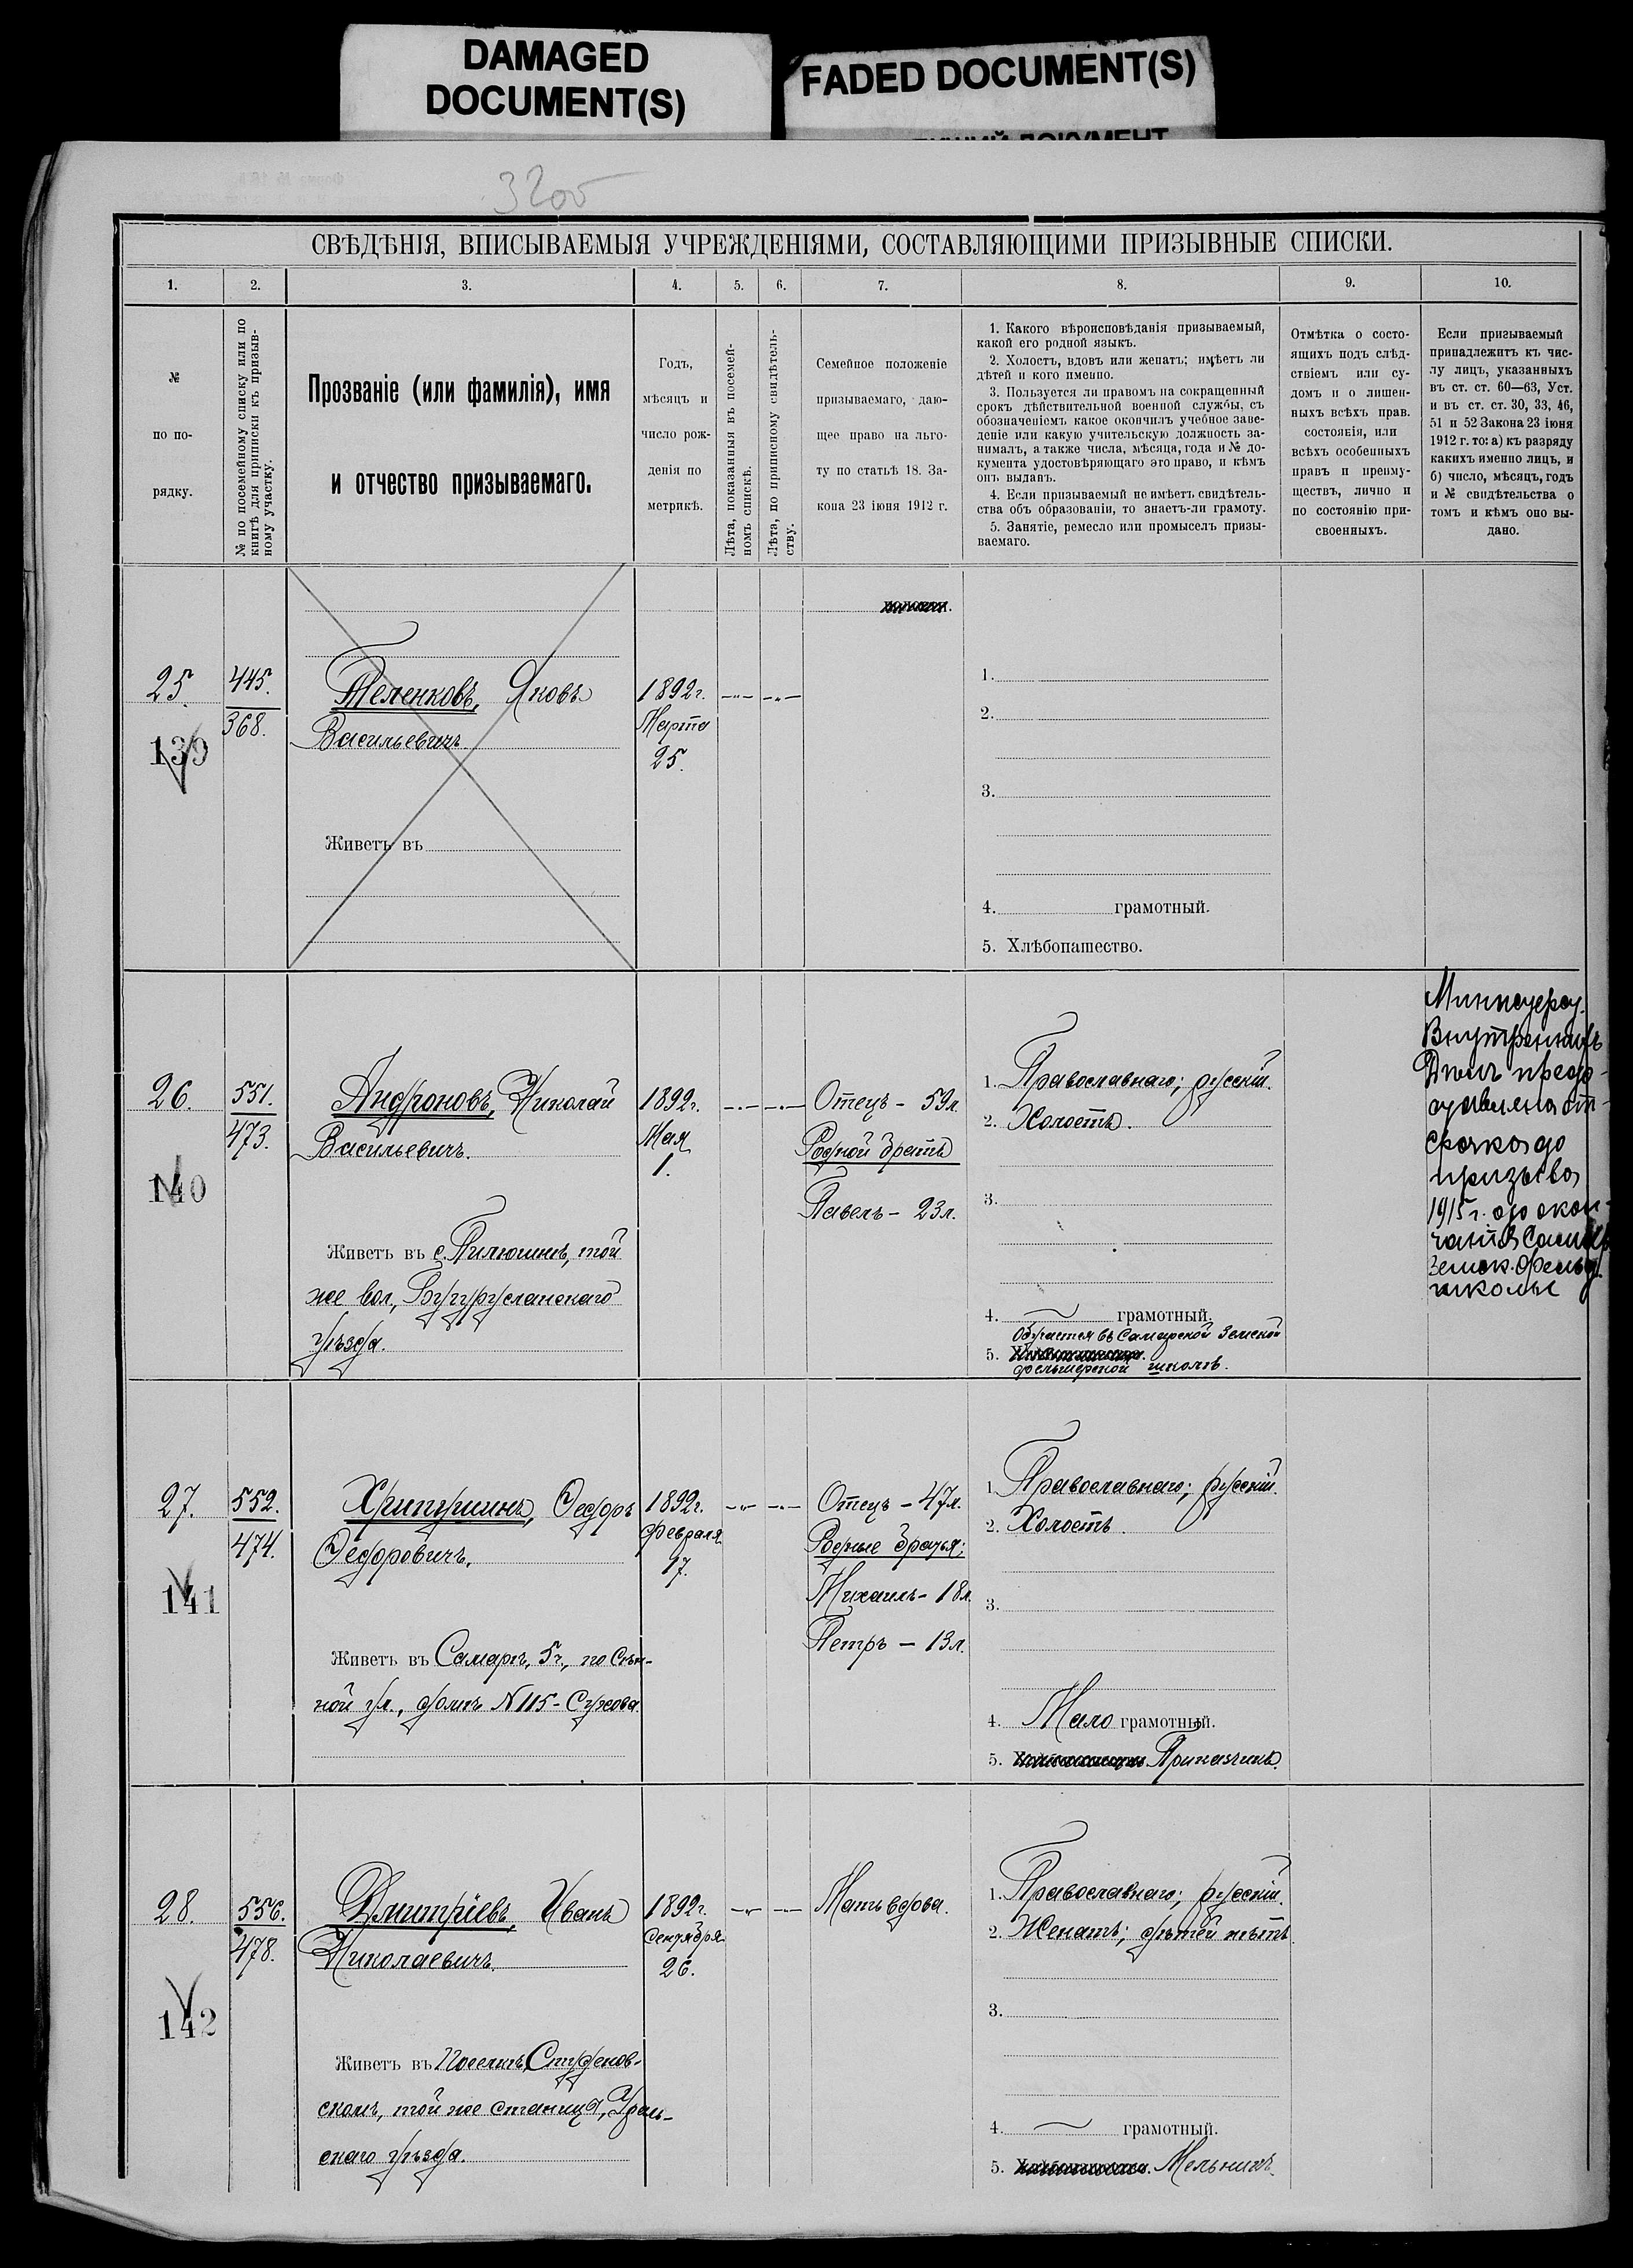 DAMAGED
DOCUMENT(S)
FADED DOCUMENT(S)
3200
СВѢДѢНІЯ, ВПИСЫВАЕМЫЯ УЧРЕЖДЕНІЯМИ, СОСТАВЛЯЮЩИМИ ПРИЗЫВНЫЕ СПИСКИ.
1. 2. 3. 4. 5. 6. 7. 8. 9. 10.
№
по по-
рядку.
№ по посемейному списку или по
книгѣ для приписки къ призыв-
ному участку.
Прозваніе (или фамилія), имя
и отчество призываемаго.
Годъ,
мѣсяцъ и
число рож-
денія по
метрикѣ.
Лѣта, показанныя въ посемей-
номъ спискѣ.
Лѣта, по приписному свидѣтель-
ству.
Семейное положеніе
призываемаго, даю-
щее право на льго-
ту по статьѣ 18. За-
кона 23 іюня 1912 г.
1. Какого вѣроисповѣданія призываемый,
какой его родной языкъ.
2. Холостъ, вдовъ или женатъ; имѣетъ ли
дѣтей и кого именно.
3. Пользуется ли правомъ на сокращенный
срокъ дѣйствительной военной службы, съ
обозначеніемъ какое окончилъ учебное заве-
деніе или какую учительскую должность за-
нималъ, а также числа, мѣсяца, года и № до-
кумента удостовѣряющаго это право, и кѣмъ
онъ выданъ.
4. Если призываемый не имѣетъ свидѣтель-
ства объ образованіи, то знаетъ-ли грамоту.
5. Занятіе, ремесло или промыселъ призы-
ваемаго.
Отмѣтка о состо-
ящихъ подъ слѣд-
ствіемъ или су-
домъ и о лишен-
ныхъ всѣхъ прав.
состоянія, или
всѣхъ особенныхъ
правъ и преиму-
ществъ, лично и
по состоянію при-
своенныхъ.
Если призываемый
принадлежитъ къ чис-
лу лицъ, указанныхъ
въ ст. ст. 60—63, Уст.
и въ ст. ст. 30, 33, 46,
51 и 52 Закона 23 іюня
1912 г. то: а) къ разряду
какихъ именно лицъ, и
б) число, мѣсяцъ, годъ
и № свидѣтельства о
томъ и кѣмъ оно вы-
дано.
25. 445. Теленковъ, Яковъ 1892г.
368. Васильевичъ. Марта
139 25.
Живетъ въ
1.
2.
3.
4. грамотный.
5. Хлѣбопашество.
26. 551. Андроновъ, Николай 1892г.
473. Васильевичъ. Мая
140 1.
Живетъ въ с. Пилюгинѣ, той
же вол., Бугурусланскаго
уѣзда.
Отецъ - 59л.
Родной братъ
Павелъ - 23л.
1. Православнаго; русскій.
2. Холостъ.
3.
4. грамотный.
Обучается въ Самарской Земской
5.
фельшерской школѣ.
Внутреннихъ
срочка до
призыва
1915г. до окон-
чанія Самар
Земск. Фельд.
школы
27. 552. Хрипушинъ, Ѳедоръ 1892г.
474. Ѳедоровичъ. Февраля
141 17.
Живетъ въ Самарѣ, 5ч., по Сѣн-
ной ул., домъ N 115 - Сужова
Отецъ - 47л.
Родные братья:
Михаилъ - 18л.
Петръ — 13л.
1. Православнаго; русскій.
2. Холостъ.
3.
4. Мало грамотный.
5. Приказчикъ.
28. 556. Дмитріевъ, Иванъ 1892г.
478. Николаевичъ.
142 26.
Живетъ въ Поселкѣ Студенов-
скомъ, той же станицы, Ураль-
скаго уѣзда.
Мать вдова.
1. Православнаго; русскій.
2. Женатъ; дѣтей нѣтъ.
3.
4. грамотный.
5. Мельникъ.